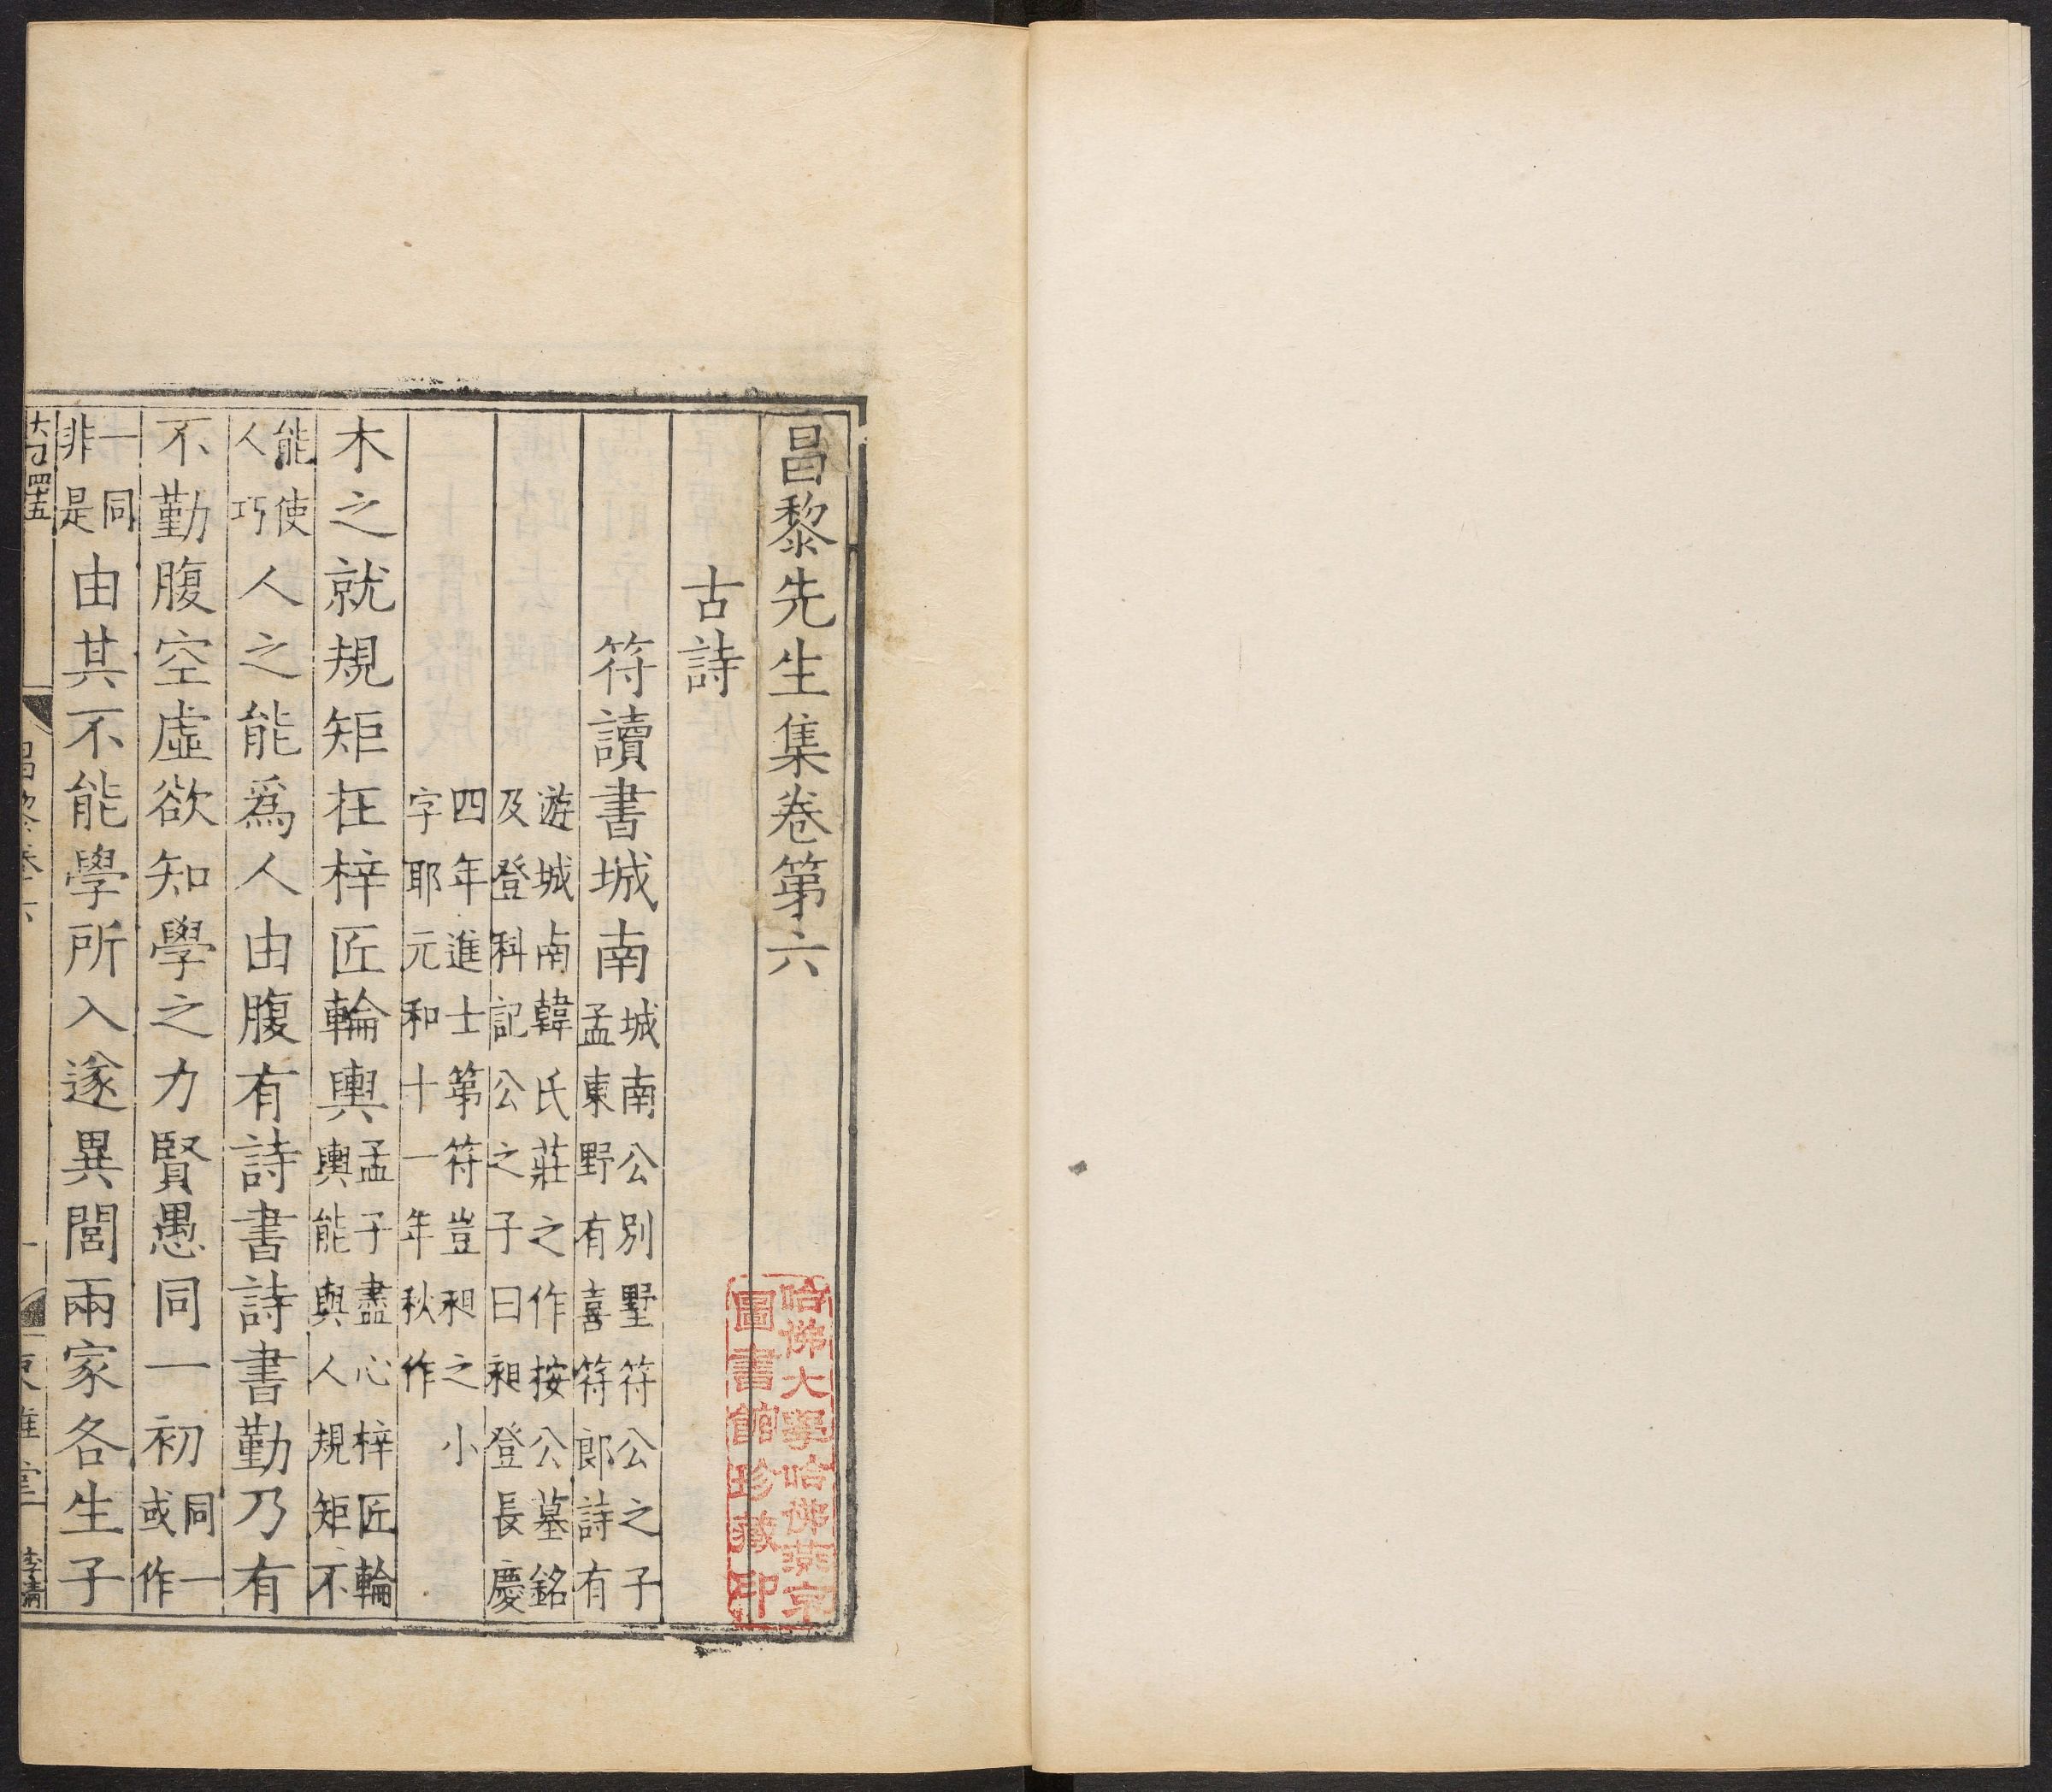 昌黎先生集卷第六
古詩
符讀書城南
城南公別墅符公之子
孟東野有喜符郎詩有
遊城南韓氏莊之作按公墓銘
及登科記公之子曰昶登長慶
四年進士第符豈昶之小
字耶元和十一年秋作
木之就規矩在梓匠輪輿
孟子盡心梓匠輪
輿能與人規矩不
能使
人巧
人之能爲人由腹有詩書詩書勤乃有
不勤腹空虛欲知學之力賢愚同一初
同一
或作
一同
非是
由其不能學所入遂異閭兩家各生子
大四五
昌黎卷六
一
東雅堂
李清
哈佛大學哈佛燕京
圖書館珍藏印